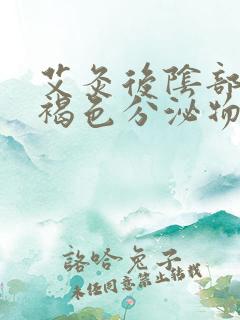 艾灸後陰部
褐色分泌物
諮哈兔子
未经同意禁止转载